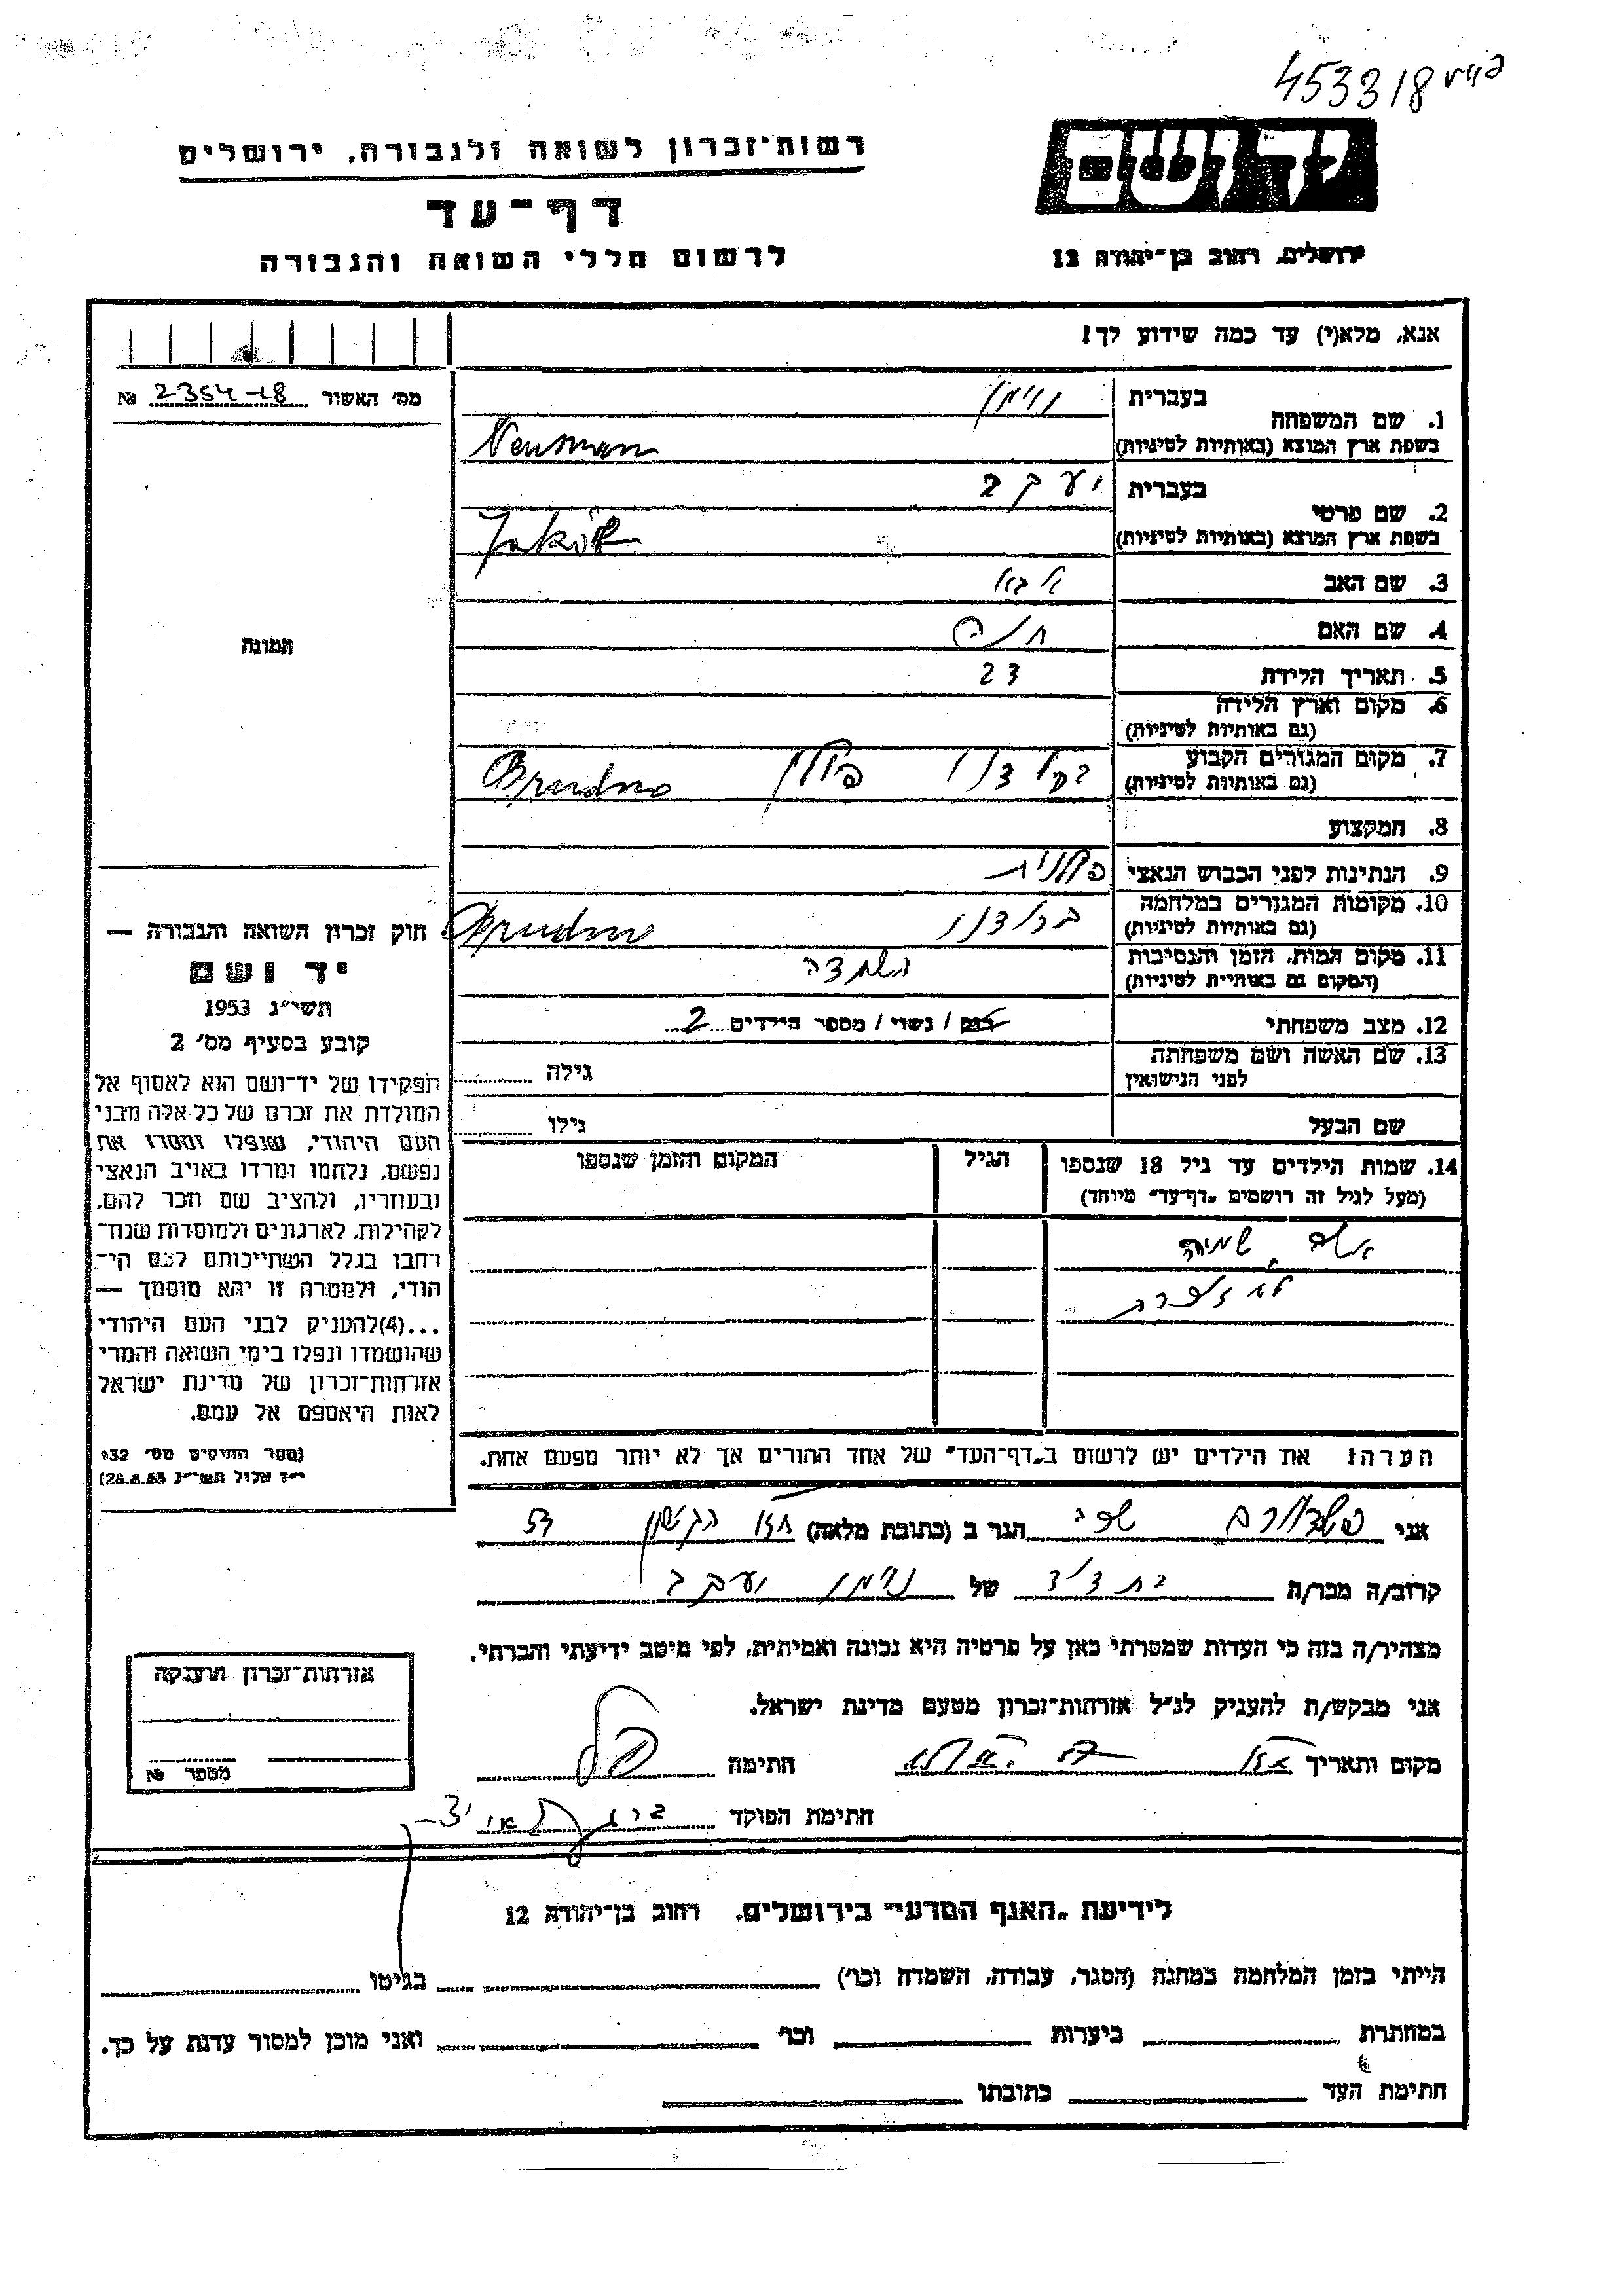 453318
רשות־זכרון לשואה ולגבורה, ירושלים
יד ושם
דף־עד
לרשום חללי השואה והגבורה
ירושלים, רחוב בן־יהודה 12
אנא, מלא(י) עד כמה שידוע לך!
מס׳ האשור 2354-18 №
1. שם המשפחה בעברית נוימן
בשפת ארץ המוצא (באותיות לטיניות) Neuman
2. שם פרטי בעברית יעקב
בשפת ארץ המוצא (באותיות לטיניות) Jakób
3. שם האב
4. שם האם חנה
5. תאריך הלידה 23
6. מקום וארץ הלידה
(גם באותיות לטיניות)
7. מקום המגורים הקבוע פולין Brudno
(גם באותיות לטיניות)
8. המקצוע
9. הנתינות לפני הכבוש הנאצי פולנית
10. מקומות המגורים במלחמה ברודנו Brudno
(גם באותיות לטיניות)
11. מקום המות, הזמן והנסיבות השמדה
(המקום גם באותיות לטיניות)
12. מצב משפחתי רווק / נשוי / מספר הילדים 2
13. שם האשה ושם משפחתה
לפני הנישואין
גילה
שם הבעל גילו
14. שמות הילדים עד גיל 18 שנספו הגיל המקום והזמן שנספו
(מעל לגיל זה רושמים „דף־עד״ מיוחד)
הערה! את הילדים יש לרשום ב„דף־העד״ של אחד ההורים אך לא יותר מפעם אחת.
תמונה
חוק זכרון השואה והגבורה —
יד ושם
תשי״ג 1953
קובע בסעיף מס׳ 2
תפקידו של יד־ושם הוא לאסוף אל
המולדת את זכרם של כל אלה מבני
העם היהודי, שנפלו ומסרו את
נפשם, נלחמו ומרדו באויב הנאצי
ובעוזריו, ולהציב שם וזכר להם,
לקהילות, לארגונים ולמוסדות שנח־
רבו בגלל השתייכותם לעם הי־
הודי, ולמטרה זו יהא מוסמך —
...(4)להעניק לבני העם היהודי
שהושמדו ונפלו בימי השואה והמרי
אזרחות־זכרון של מדינת ישראל
לאות היאספם אל עמם.
(ספר החוקים מס׳ 132
י״ז אלול תשי״ג 28.8.53)
אני שרה הגר ב (כתובת מלאה)
קרוב/ה מכר/ה בת דוד של נוימן יעקב
מצהיר/ה בזה כי העדות שמסרתי כאן על פרטיה היא נכונה ואמיתית, לפי מיטב ידיעתי והכרתי.
אני מבקש/ת להעניק לנ״ל אזרחות־זכרון מטעם מדינת ישראל.
מקום ותאריך חתימה
חתימת הפוקד
אזרחות־זכרון הוענקה
מספר №
לידיעת „האגף המדעי״ בירושלים, רחוב בן־יהודה 12
הייתי בזמן המלחמה במחנה (הסגר, עבודה, השמדה וכו׳) בגיטו
במחתרת ביערות וכו׳ ואני מוכן למסור עדות על כך.
חתימת העד כתובתו